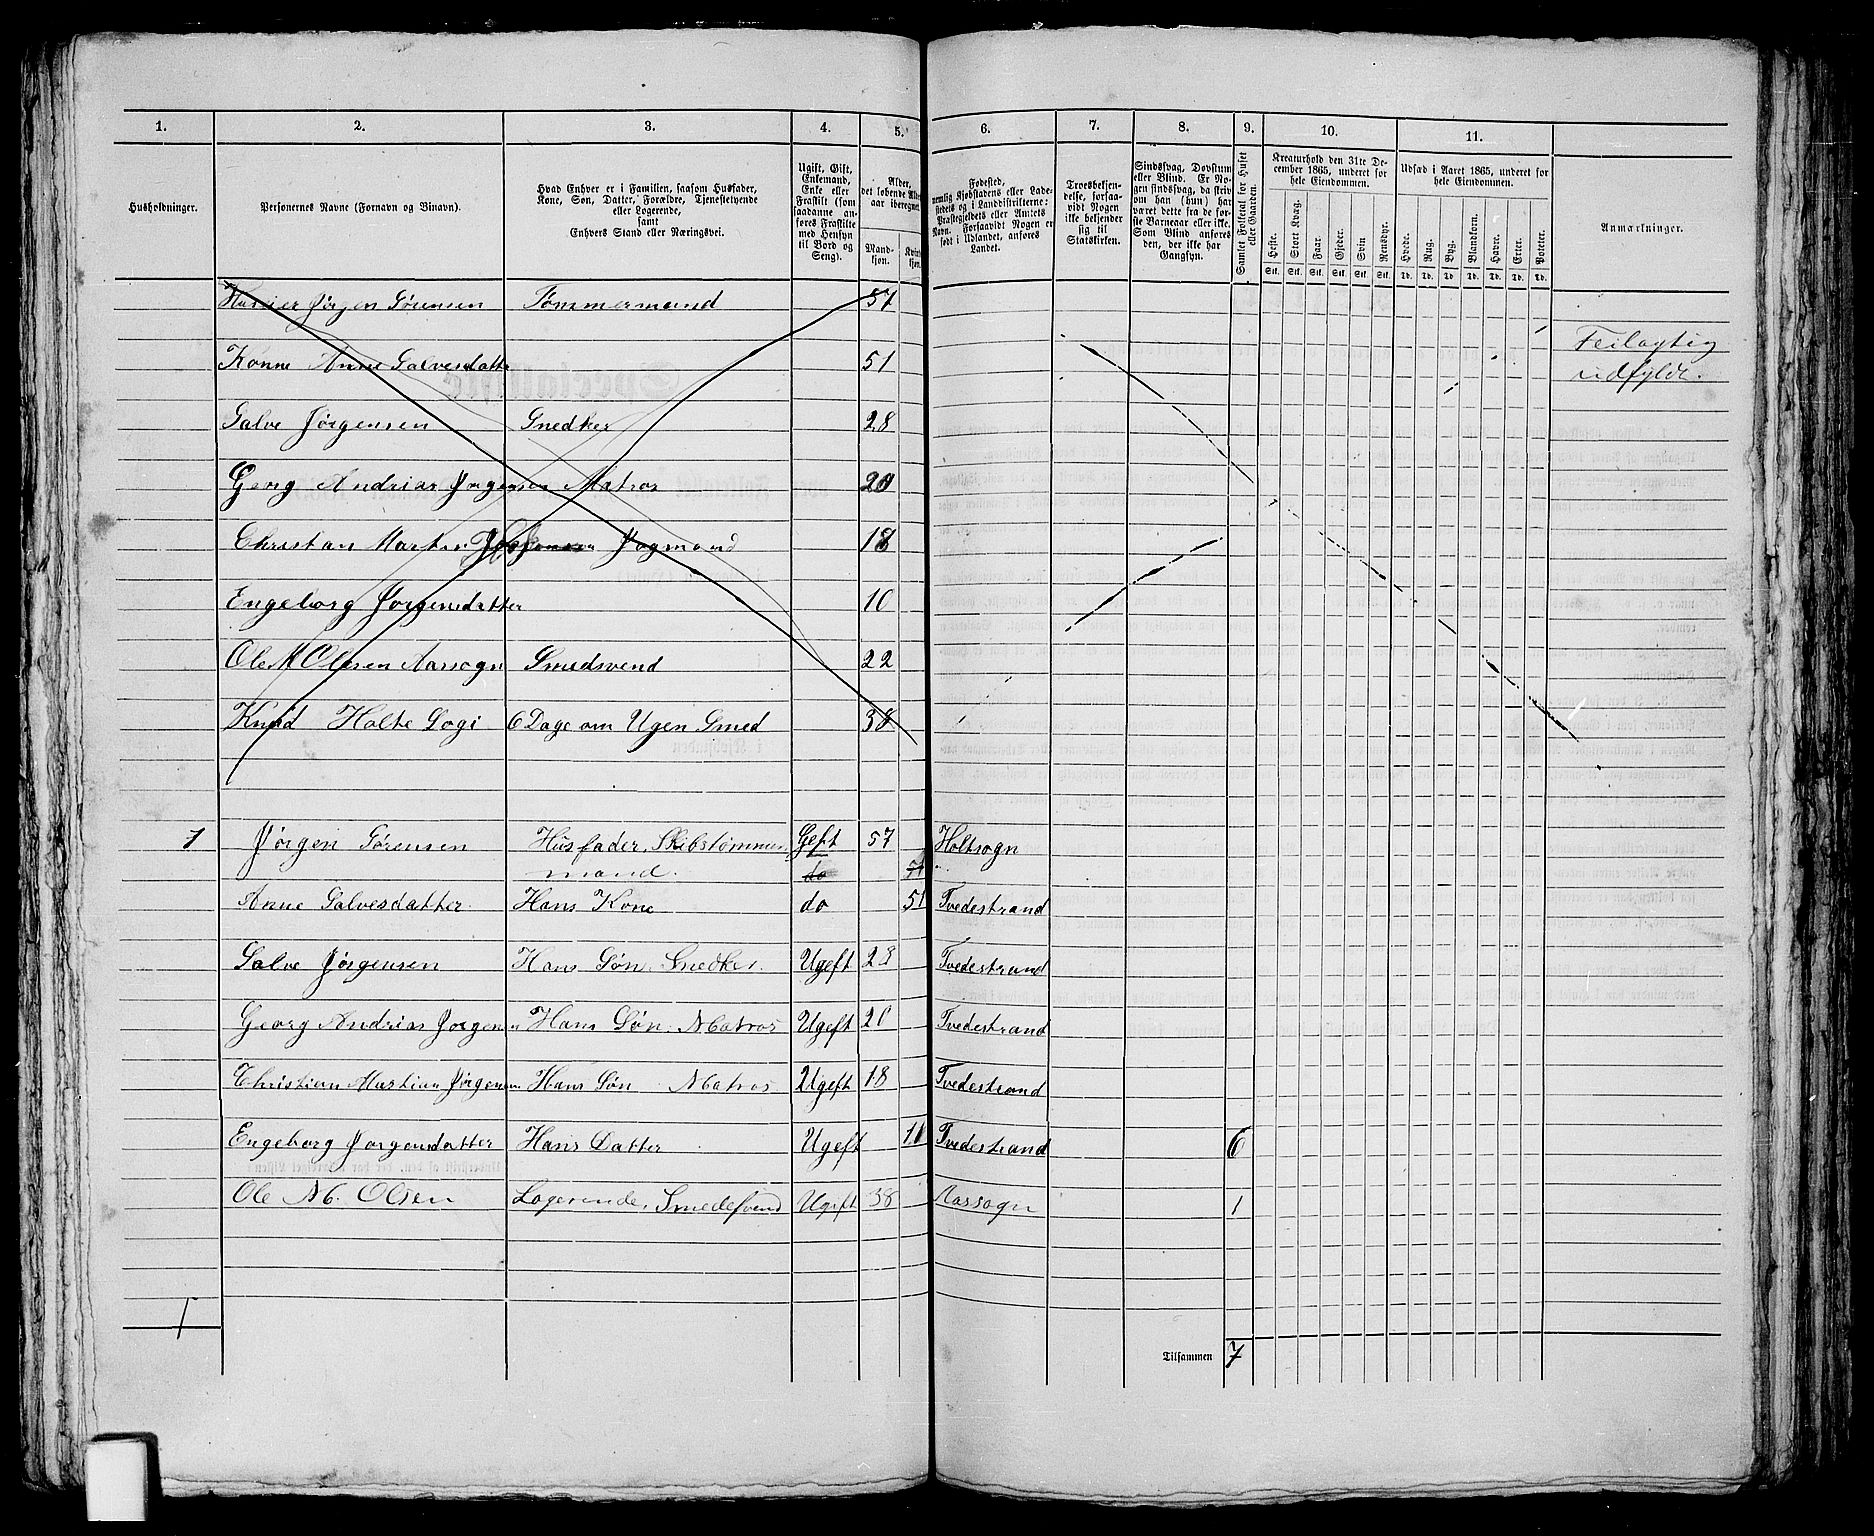 1. 2. 3. 4. 5. 6. 7. 8. 9. 10. 11.
Husholdninger.
Personernes Navne (Fornavn og Binavn).
Hvad Enhver er i Familien, saasom Husfader,
Kone, Søn, Datter, Forældre, Tjenestetyende
eller Logerende,
samt
Enhvers Stand eller Næringsvei.
Ugift, Gift,
Enkemand,
Enke eller
Fraskilt (som
saadanne an-
føres Fraskilte
med Hensyn
til Bord og
Seng).
Alder,
det løbende Alders-
aar iberegnet.
Mand-
kjøn.
Kvinde-
kjøn.
Fødested,
nemlig Kjøbstadens eller Lade-
stedets og i Landdistrikterne:
Præstegjeldets eller Amtets
Navn. Forsaavidt Nogen er
født i Udlandet, anføres
Landet.
Troesbekjen-
delse, forsaa-
vidt Nogen
ikke bekjender
sig til
Statskirken.
Sindssvag, Døvstum
eller Blind. Er No-
gen sindssvag, da skriv
om han (hun) har
været dette fra de før-
ste Barneaar eller ikke.
Som Blind anføres
den, der ikke har
Gangsyn.
Samlet Folketal for Huset
eller Gaarden.
Kreaturhold den 31te De-
cember 1865, underet for
hele Eiendommen.
Heste. Stort Kvæg. Faar. Gjeder. Svin Rensdyr.
Stk. Stk. Stk. Stk. Stk. Stk.
Udsæd i Aaret 1865, underet for
hele Eiendommen.
Hvede. Rug. Byg. Blandkorn. Havre. Erter. Poteter.
Td. Td. Td. Td. Td. Td. Td.
Anmærkninger.
Jørgen Sørensen Tømmermand 57
Feilagtig
udfyldt.
Konne Anne Salvesdatte 51
Salve Jørgensen Snedker 28
Georg Andrias Jørgensen Matros 20
Christan Marten Jørgensen Jogmand 18
Engeborg Jørgensdatter 10
Ole M Olesen Aassogn Smedsvend 22
Knud Holte Sogn 6 Dage om Ugen Smed 38
1 Jørgen Sørensen Husfader, Skibstømmer- Geft 57 Holtsogn
mand. do 51
Anne Salvesdatter. Hans Kone do 51 Tvedestrand
Salve Jørgensen Hans Søn. Snedker. Ugeft 28 Tvedestrand
Georg Andrias Jorgensen Hans Søn. Matros Ugeft 20 Tvedestrand
Christian Mastian Jørgensen Hans Søn Matros Ugeft 18 Tvedestrand
Engeborg Jorgensdatter Hans Datter Ugeft 11 Tvedestrand 6
Ole M. Olsen Logerende, Smedesvend Ugift 38 Aassogn 1
1
Tilsammen 7